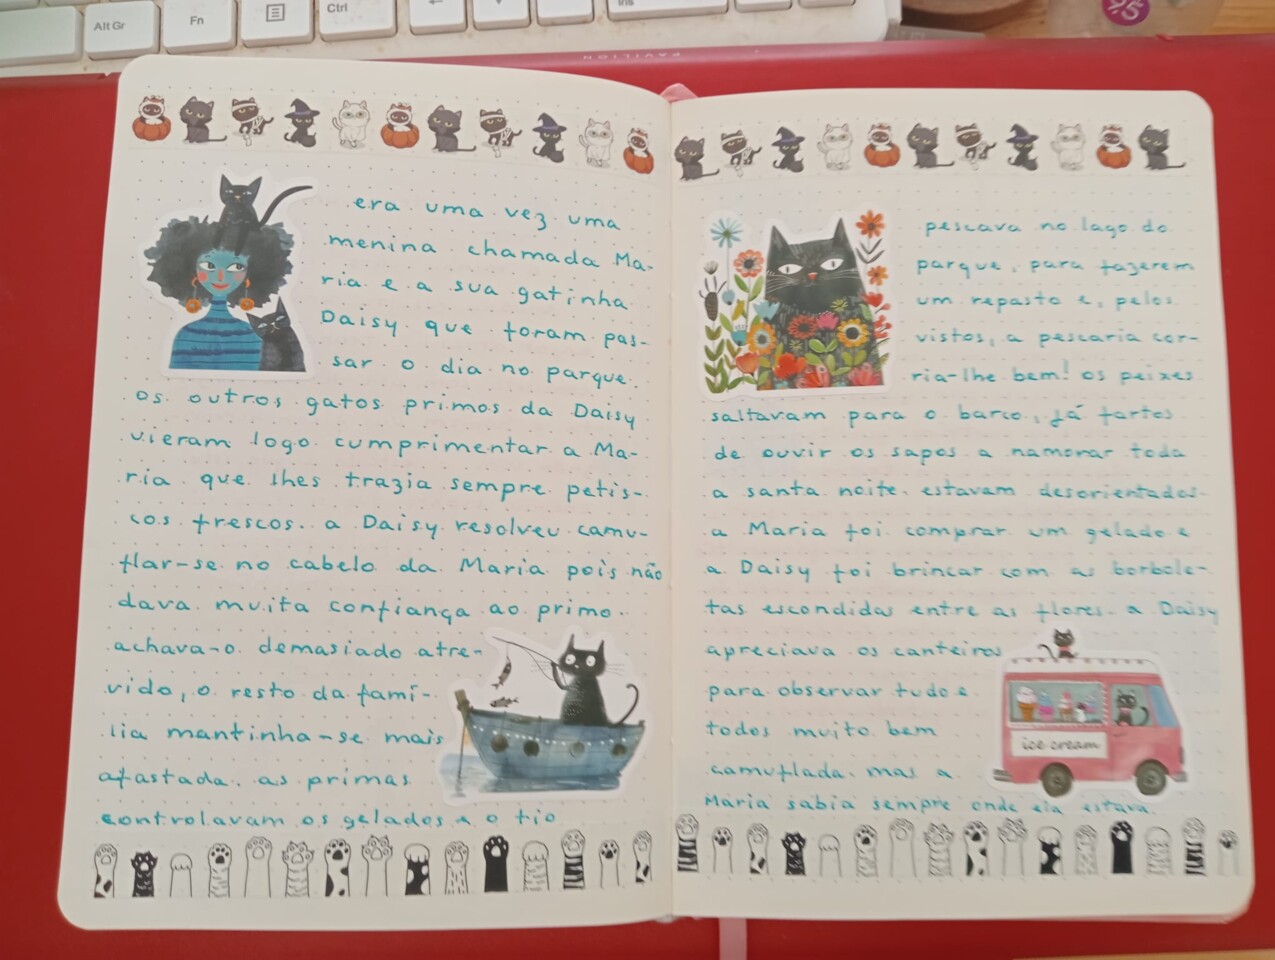 Alt Gr
Fn
Ctrl
Ins
PAVILION
95
era uma vez uma
menina chamada Ma-
ria e a sua gatinha
Daisy que foram pas-
sar o dia no parque.
os outros gatos primos da Daisy
vieram logo cumprimentar a Ma-
ria que lhes trazia sempre petis-
cos frescos. a Daisy resolveu camu-
flar-se no cabelo da Maria pois não
dava muita confiança ao primo.
achava-o demasiado atre-
vido, o resto da famí-
lia mantinha-se mais
afastada. as primas
controlavam os gelados e o tio
pescava no lago do
parque, para fazerem
um repasto e, pelos
vistos, a pescaria cor-
ria-lhe bem! os peixes
saltavam para o barco, já fartos
de ouvir os sapos a namorar toda
a santa noite. estavam desorientados.
a Maria foi comprar um gelado e
a Daisy foi brincar com as borbole-
tas escondidas entre as flores. a Daisy
apreciava os canteiros
para observar tudo e
todos muito bem
camuflada. mas a
Maria sabia sempre onde ela estava.
ice cream